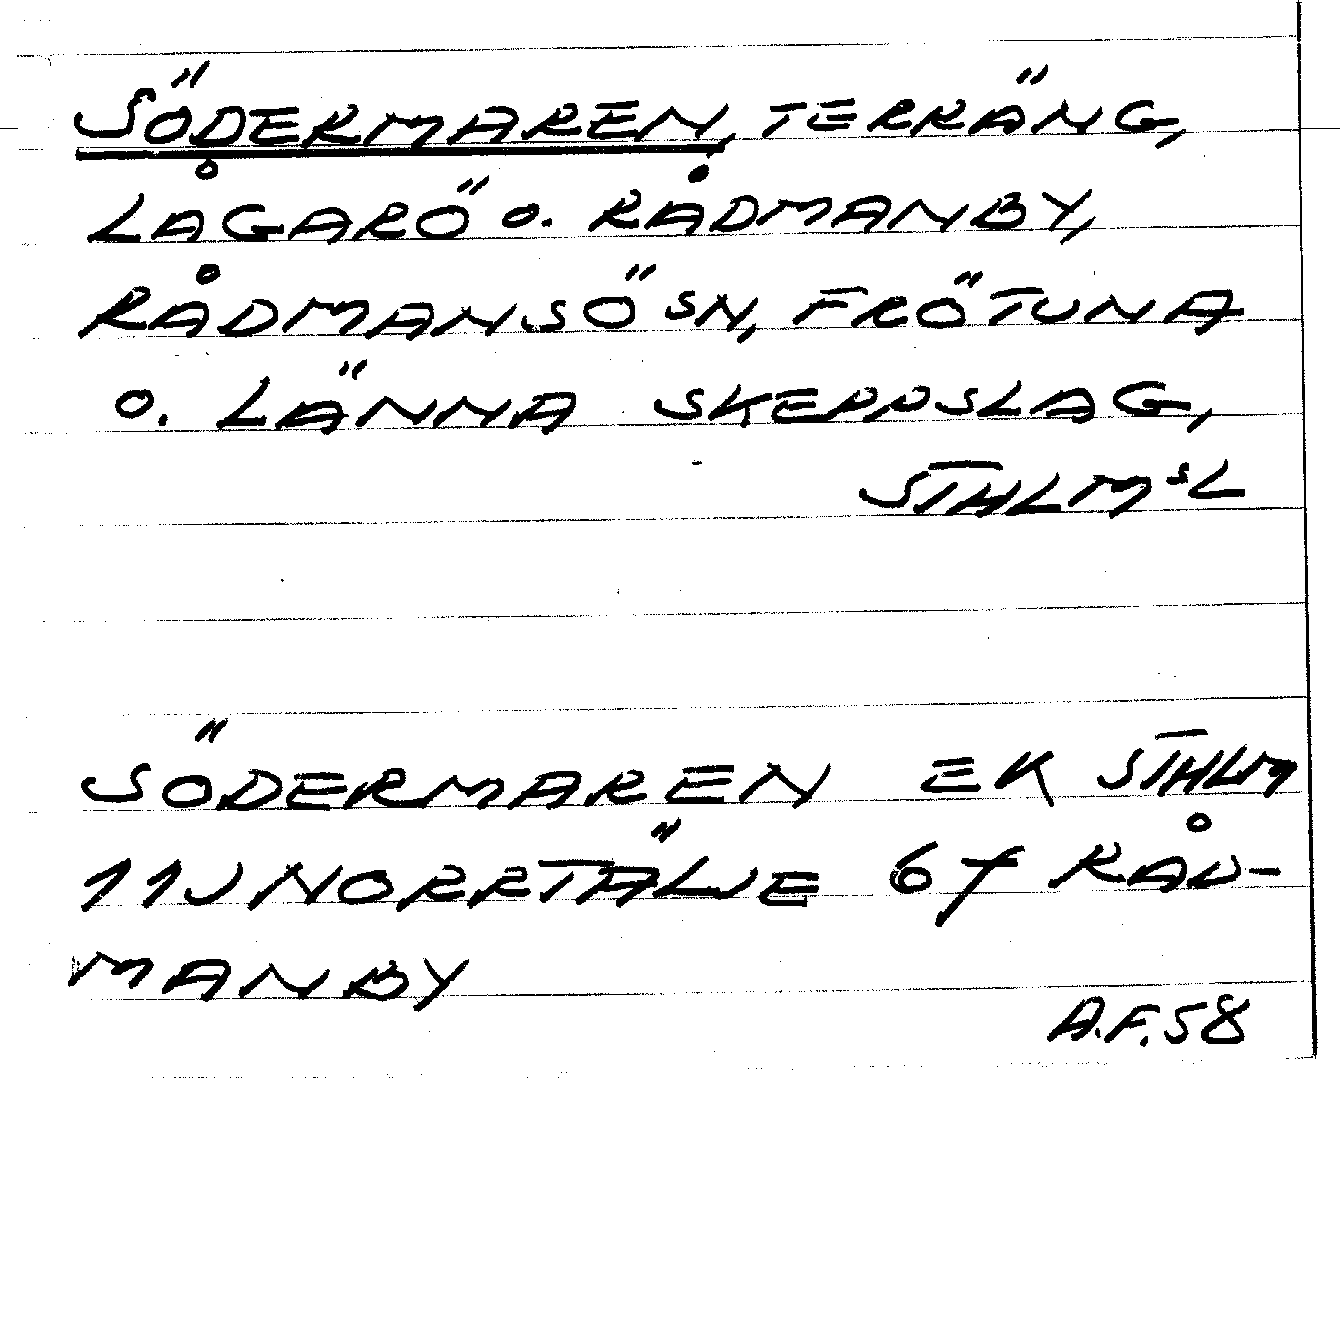 SÖDERMAREN, TERRÄNG,
LÅGARÖ o. RÅDMANBY,
RÅDMANSÖ SN, FRÖTUNA
o. LÄNNA SKEPPSLAG,
STHLMS L
SÖDERMAREN EK STHLM
11J NORRTÄLJE 6f RÅD-
MANBY
A.F. 58